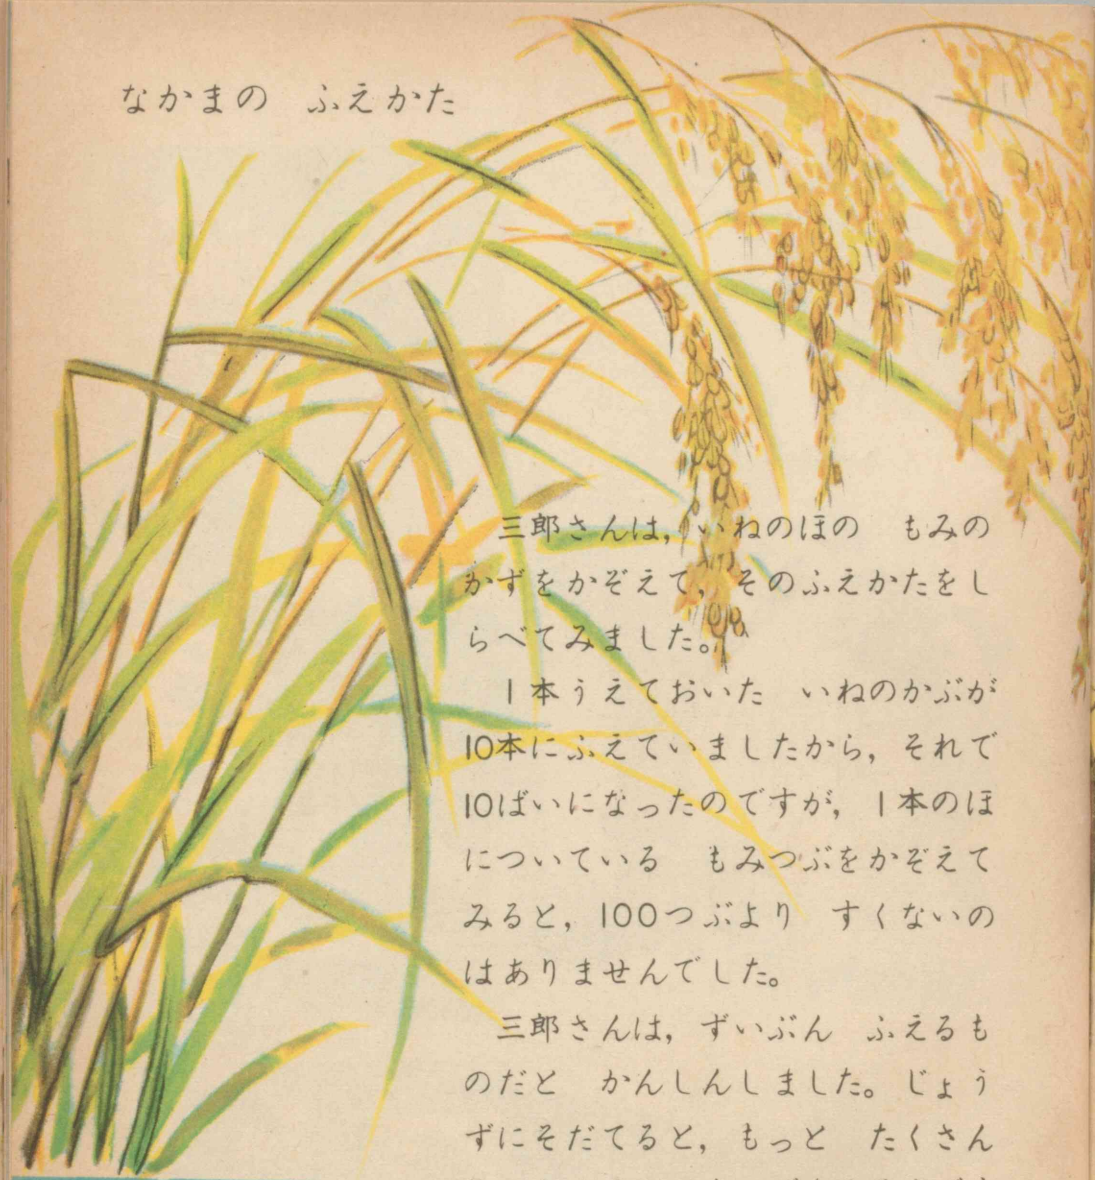 なかまの　ふえかた
三郎さんは，いねのほの　もみの
かずをかぞえて，そのふえかたをし
らべてみました。
1本うえておいた　いねのかぶが
10本にふえていましたから，それで
10ばいになったのですが，1本のほ
についている　もみつぶをかぞえて
みると，100つぶより　すくないの
はありませんでした。
三郎さんは，ずいぶん　ふえるも
のだと　かんしんしました。じょう
ずにそだてると，もっと　たくさん